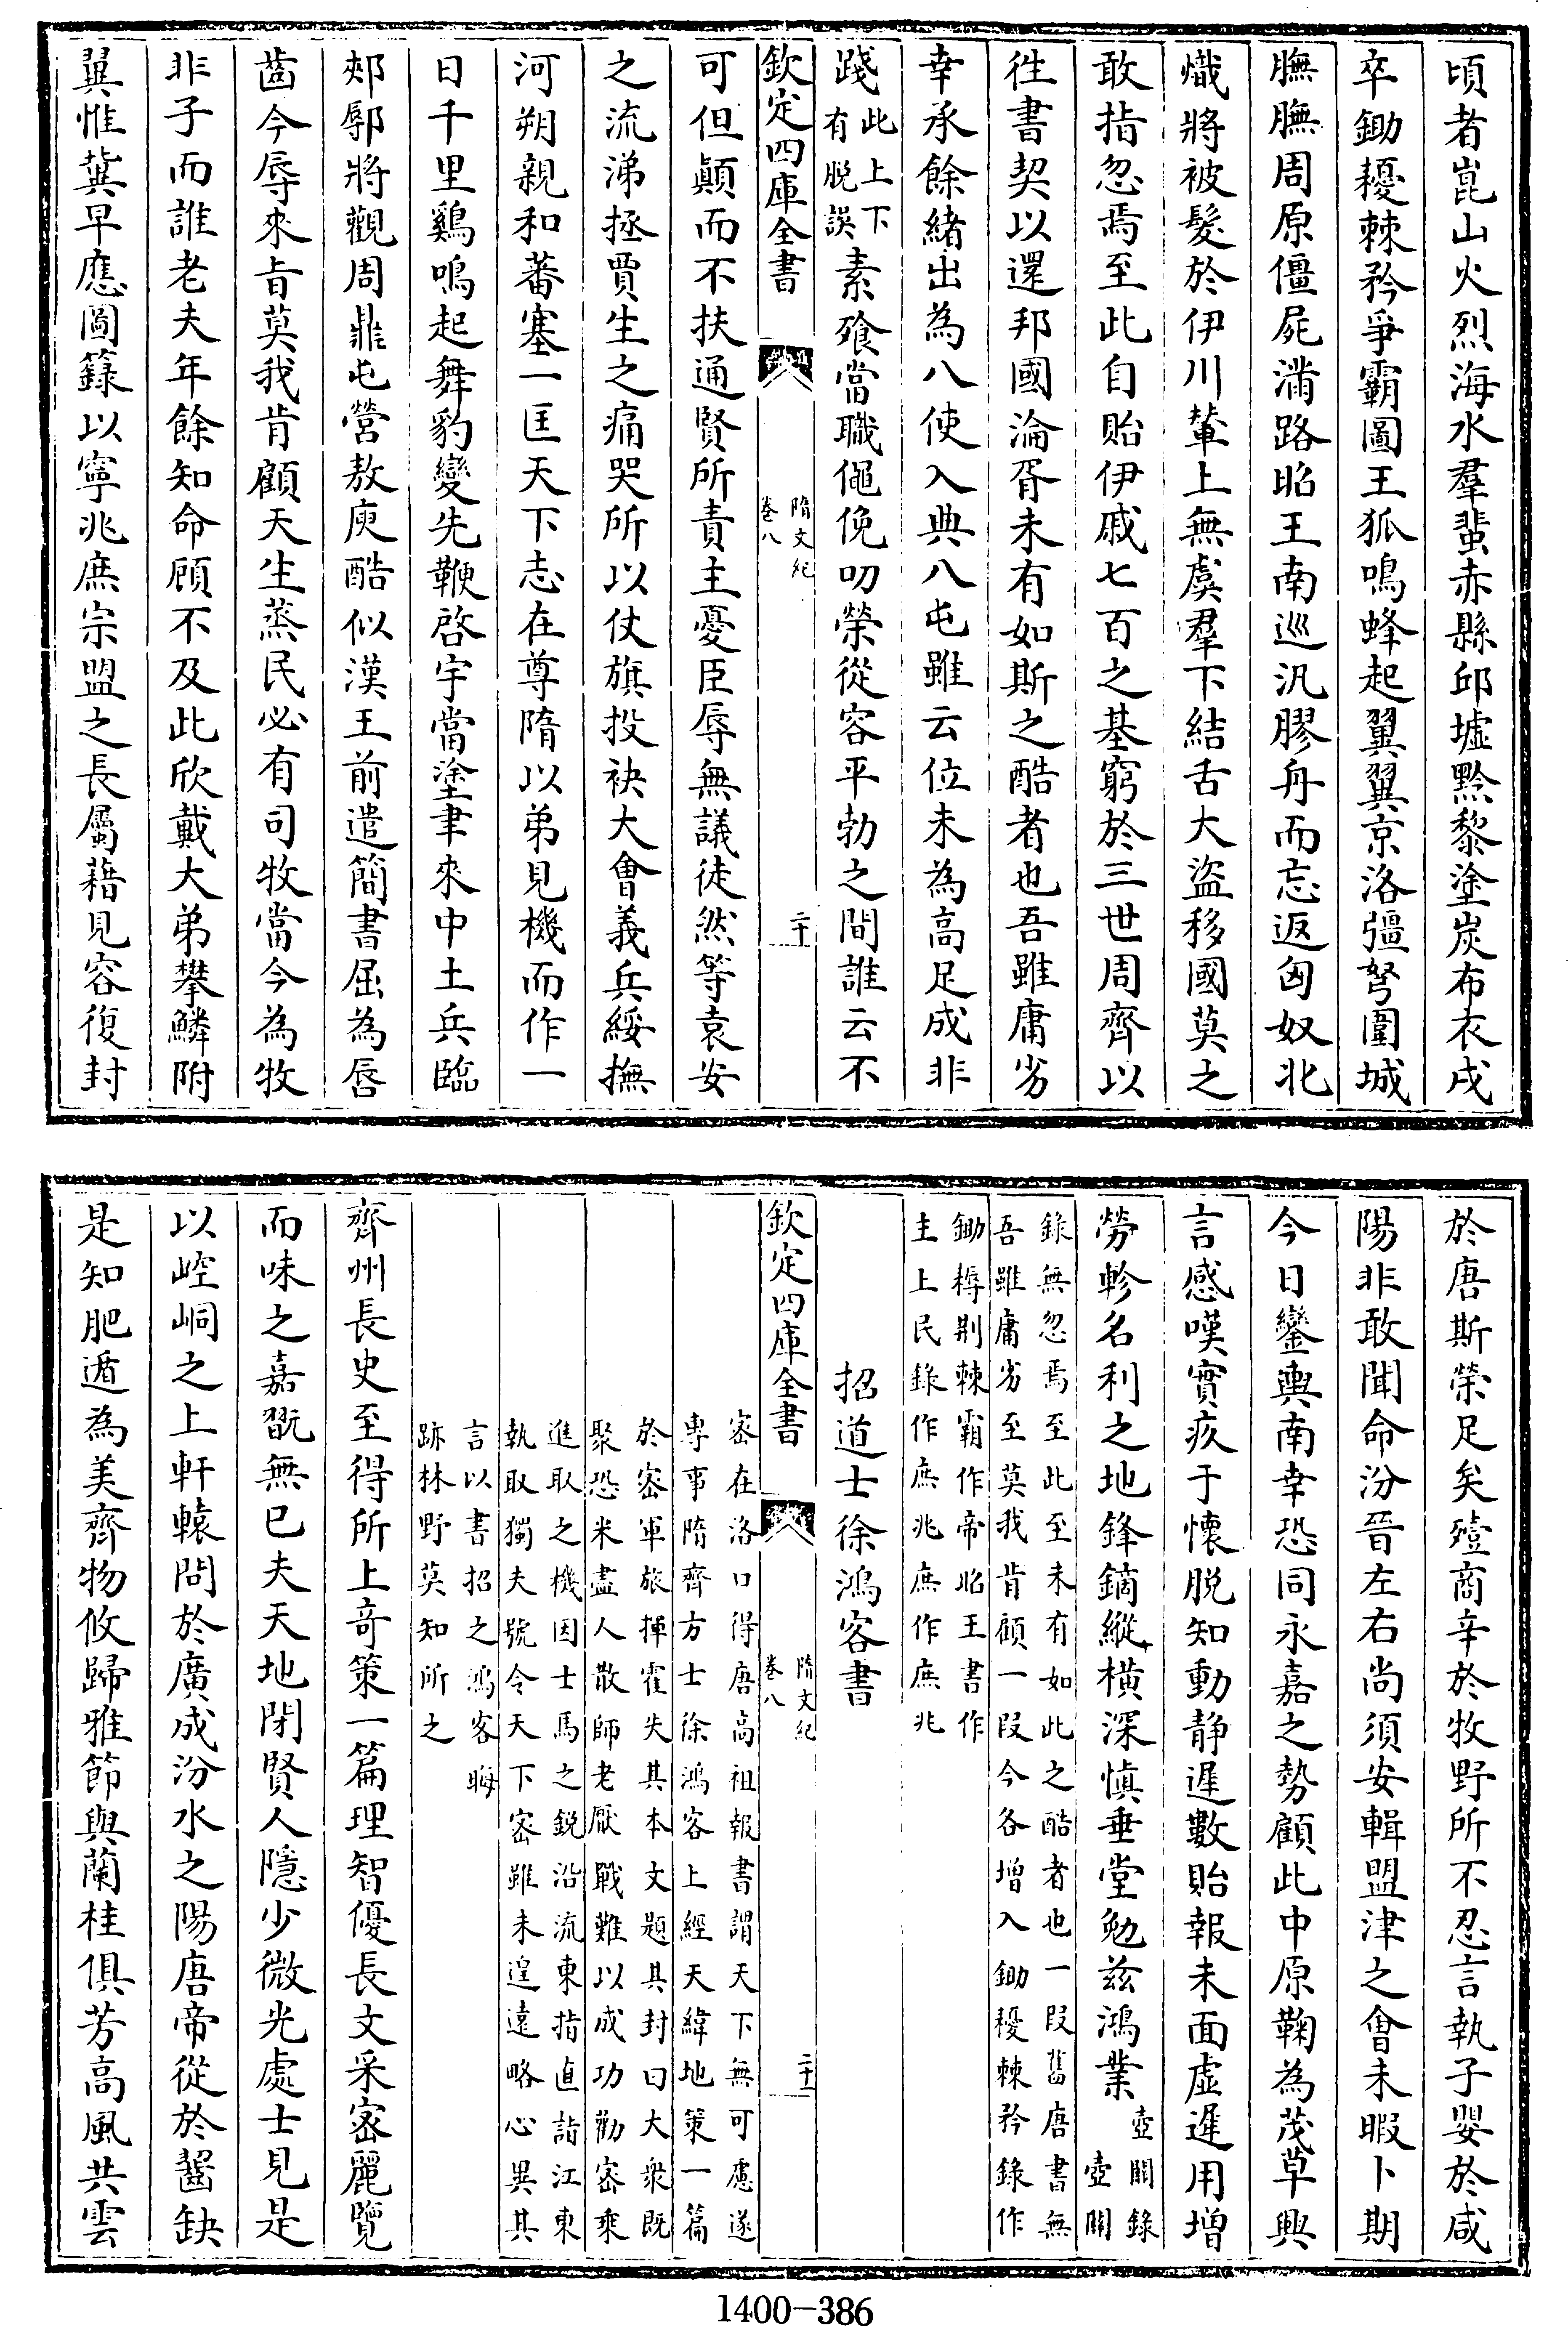 頃者崑山火烈海水羣蜚赤縣邱墟黔黎塗炭布衣戍
卒鋤耰棘矜爭霸圖王狐鳴蜂起翼翼京洛彊弩圍城
膴膴周原僵屍滿路昭王南巡汎膠舟而忘返匈奴北
熾將被髮於伊川輦上無虞羣下結舌大盜移國莫之
敢指忽焉至此自貽伊戚七百之基窮於三世周齊以
徃書契以還邦國淪胥未有如斯之酷者也吾雖庸劣
幸承餘緒出為八使入典八屯雖云位未為高足成非
踐此上下有脱誤素飱當職僶俛叨榮從容平勃之間誰云不
欽定四庫全書
隋文紀
卷八
二十
可但顛而不扶通賢所責主憂臣辱無議徒然等袁安
之流涕拯賈生之痛哭所以仗旗投袂大會義兵綏撫
河朔親和蕃塞一匡天下志在尊隋以弟見機而作一
日千里鷄鳴起舞豹變先鞭啓宇當塗聿來中土兵臨
郟鄏將觀周鼎屯營敖庾酷似漢王前遣簡書屈為唇
齒今辱來旨莫我肯顧天生蒸民必有司牧當今為牧
非子而誰老夫年餘知命顧不及此欣戴大弟攀鱗附
翼惟冀早應圖籙以寧兆庶宗盟之長屬藉見容復封
於唐斯榮足矣殪商辛於牧野所不忍言執子嬰於咸
陽非敢聞命汾晉左右尚須安輯盟津之會未暇卜期
今日鑾輿南幸恐同永嘉之勢顧此中原鞠為茂草興
言感嘆實疚于懷脱知動静遲數貽報未面虛遲用增
勞軫名利之地鋒鏑縱横深慎垂堂勉兹鴻業壺關錄壺關
錄無忽焉至此至未有如此之酷者也一段舊唐書無
吾雖庸劣至莫我肯顧一段今各增入鋤耰棘矜錄作
鋤耨荆棘霸作帝昭王書作
主上民錄作庶兆庶作庶兆
招道士徐鴻客書
欽定四庫全書
隋文紀
卷八
二十一
密在洛口得唐高祖報書謂天下無可慮遂
專事隋齊方士徐鴻客上經天緯地策一篇
於密軍旅揮霍失其本文題其封曰大衆既
聚恐米盡人散師老厭戰難以成功勸密乘
進取之機因士馬之鋭沿流東指直詣江東
執取獨夫號令天下密雖未遑遠略心異其
言以書招之鴻客晦
跡林野莫知所之
齊州長史至得所上竒策一篇理智優長文采密麗覽
而味之嘉翫無已夫天地閉賢人隱少微光處士見是
以崆峒之上軒轅問於廣成汾水之陽唐帝從於齧缺
是知肥遁為美齊物攸歸雅節與蘭桂俱芳高風共雲
1400-386